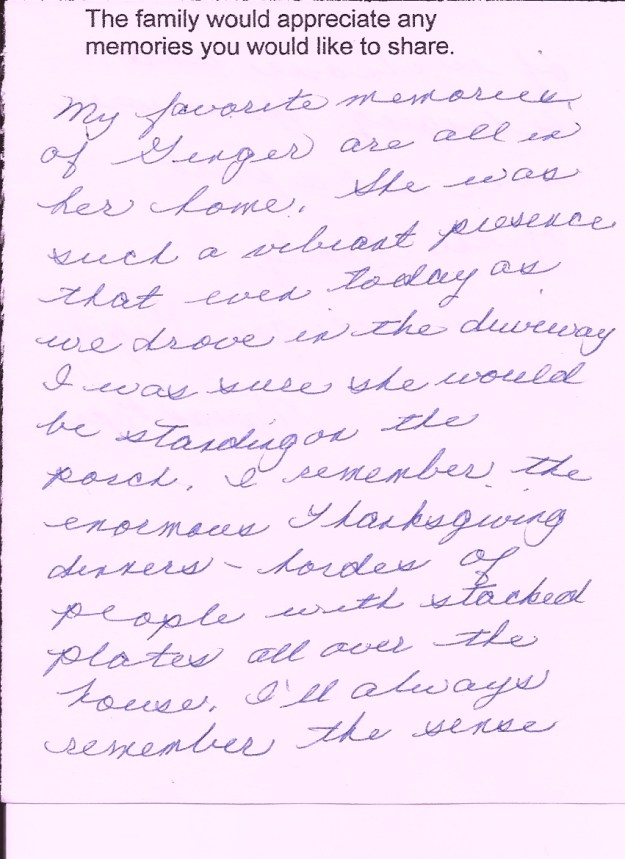 The family would appreciate any
memories you would like to share.
My favorite memories
of Ginger are all in
her home. She was
such a vibrant presence
that even today as
we drove in the driveway
I was sure she would
be standing on the
porch. I remember the
enormous Thanksgiving
dinners – hordes of
people with stacked
plates all over the
house. I'll always
remember the sense